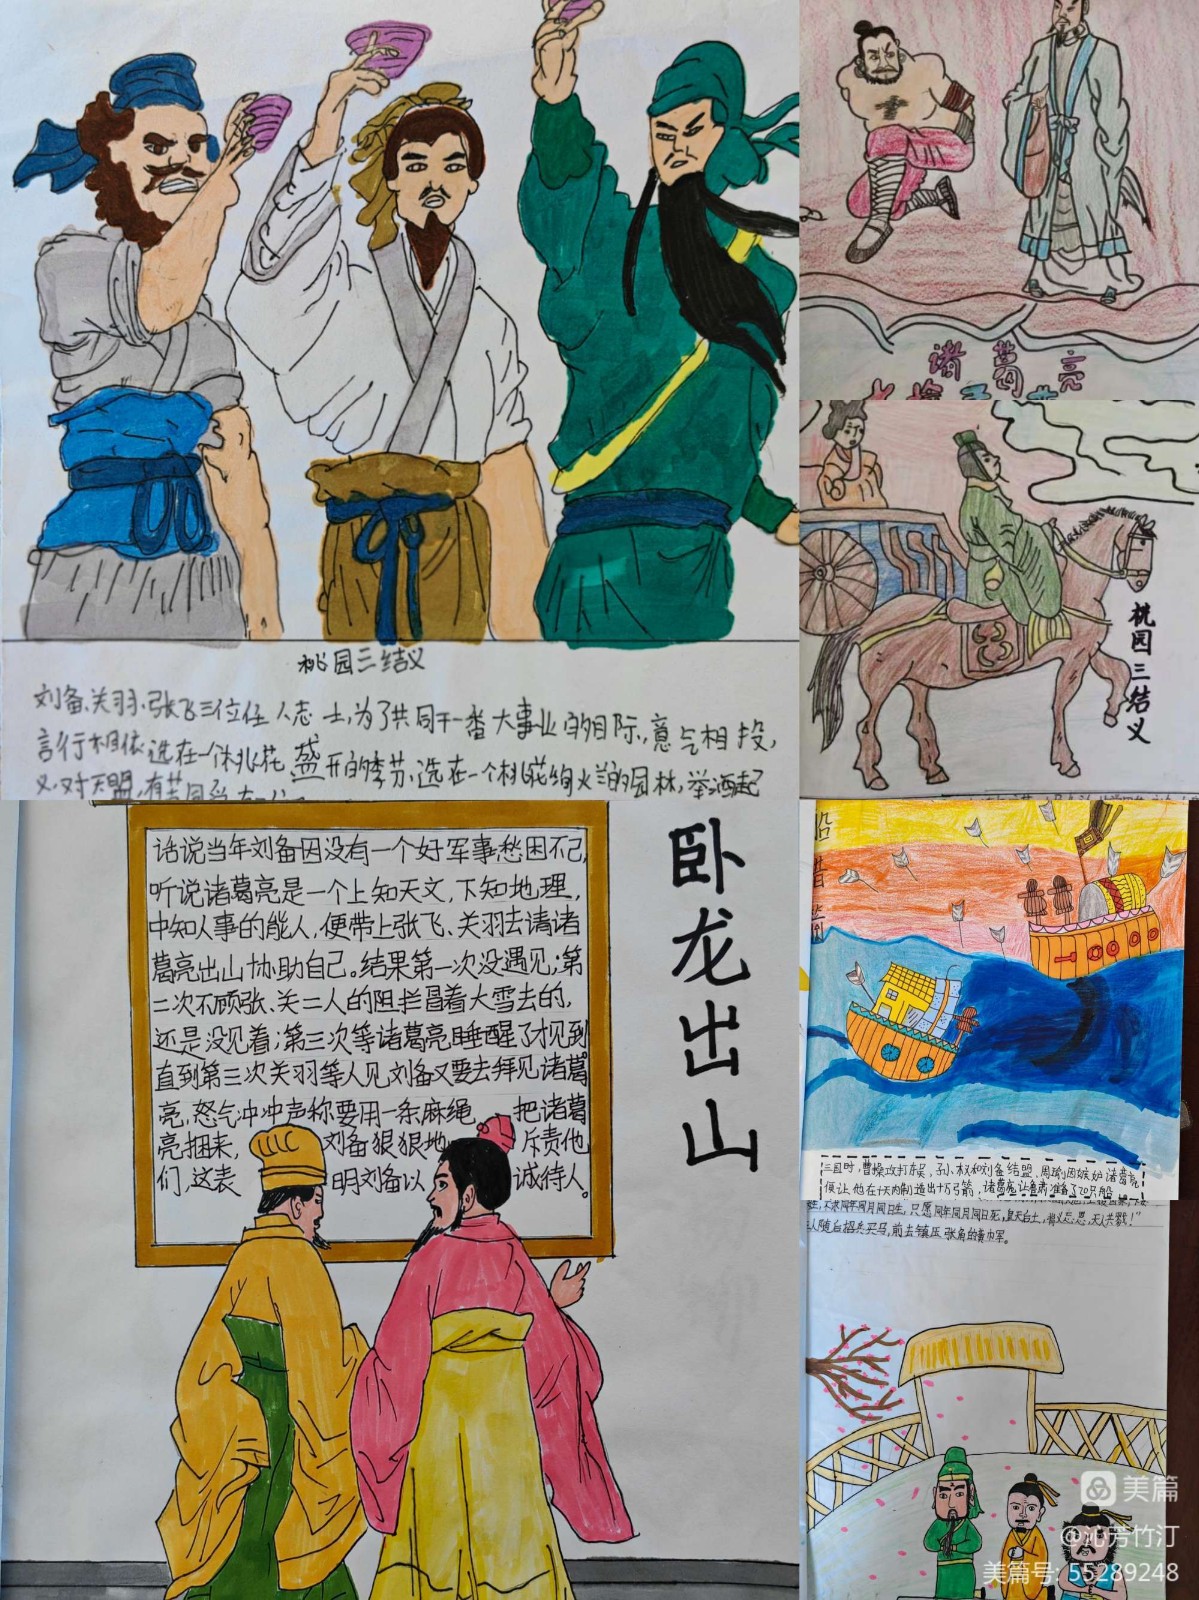 桃园三结义
刘备、关羽、张飞三位仁人志士,为了共同干一番大事业的目际,意气相投,
言行相依,选在一个桃花盛开的季节,选在一个桃花绚烂的园林,举酒起
义,对天盟,有苦同
诸葛亮
桃园三结义
卧龙出山
话说当年刘备因没有一个好军事愁困不己,
听说诸葛亮是一个上知天文,下知地理,
中知人事的能人,便带上张飞、关羽去请诸
葛亮出山协助自己。结果第一次没遇见;第
二次不顾张、关二人的阻拦冒着大雪去的,
还是没见着;第三次等诸葛亮睡醒了才见到。
直到第三次关羽等人见刘备又要去拜见诸葛
亮,怒气冲冲声称要用一条麻绳 把诸葛
亮捆来, 刘备狠狠地 斥责他
们,这表 明刘备以 诚待人。
船借箭
三国时,曹操攻打东吴,孙权和刘备结盟,周瑜因嫉妒诸葛亮,
便让他在十天内制造出十万弓箭,诸葛亮让鲁肃准备了20只船
只愿同年同月同日死,皇天后土,
人随后招兵买马,前去镇压张角的黄巾军。
美篇
@沁芳竹汀
美篇号: 55289248